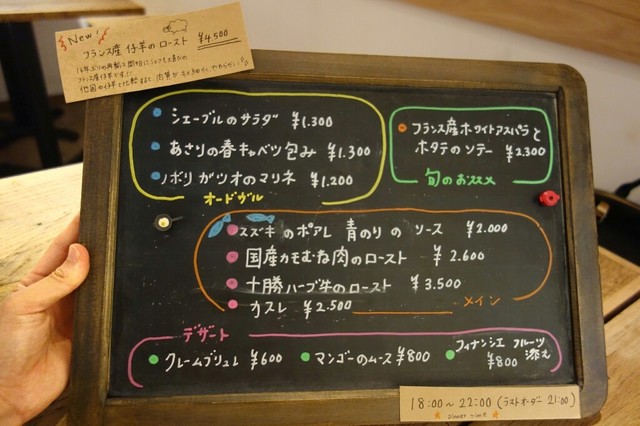 New!
フランス産 仔羊のロースト ¥4,500
シェーブルのサラダ ¥1.300
あさりの春キャベツ包み ¥1.300
ノボリガツオのマリネ ¥1.200
オードヴル
フランス産ホワイトアスパラと
ホタテのソテー ¥2.300
旬のおススメ
スズキのポアレ 青のりのソース ¥2.000
国産カモむね肉のロースト ¥2.600
十勝ハーブ牛のロースト ¥3.500
カスレ ¥2.500
メイン
デザート
クレームブリュレ ¥600
マンゴーのムース ¥800
フィナンシェ フルーツ
添え
¥800
18:00〜22:00 (ラストオーダー 21:00)
DINNER TIME